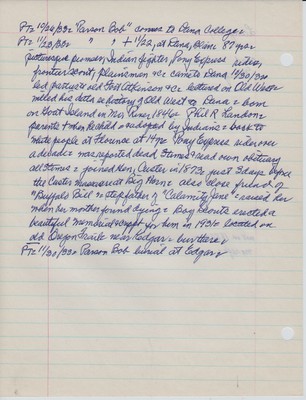 "Parson Bob" comes to Dana College
" " + 11/22, at Dana, Blair 87 yrs
picturesque pioneer, Indian fighter, Pony Express rider,
frontier scout, plainsman came to Dana 11/20/33
led party to old Fort Atkinson lectured on Old West
details history of Old West to Dana born
on Goat Island in Mo. River 1846 Phil R. Landon
parents & adopted by Indians back to
white people at Florence at 14 yrs Pony Express rider over
a decade was reported dead times & read own obituary
all times joined Gen. Custer in 1873 just 3 days before
the Custer massacre at Big Horn also close friend of
"Buffalo Bill" stepfather of "Calamity Jane" raised her
when her mother found dying Boy Scouts erected a
beautiful memorial for him in 1926 located on
old Oregon trail near Edgar buried there
11/30/33 Parson Bob burial at Edgar